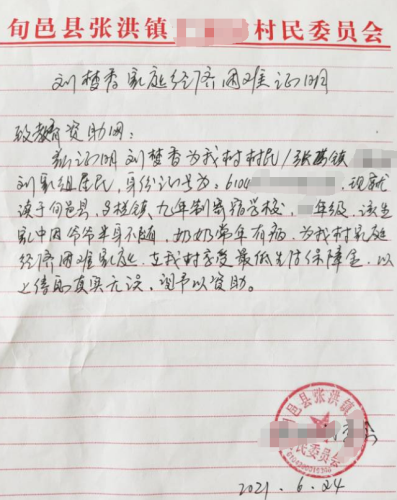 旬邑县张洪镇 村民委员会
刘楚香家庭经济困难证明
致教育资助网：
兹证明刘楚香为我村村民/张洪镇
刘家组居民，身份证号为：6104 ，现就
读于旬邑县 镇九年制寄宿学校， 年级，该生
家中因爷爷半身不随，奶奶常年有病，为我村家庭
经济困难家庭，在我村享受最低生活保障金，以
上情况真实无误，望予以资助。
旬邑县张洪镇
村民委员会
2021.6.24